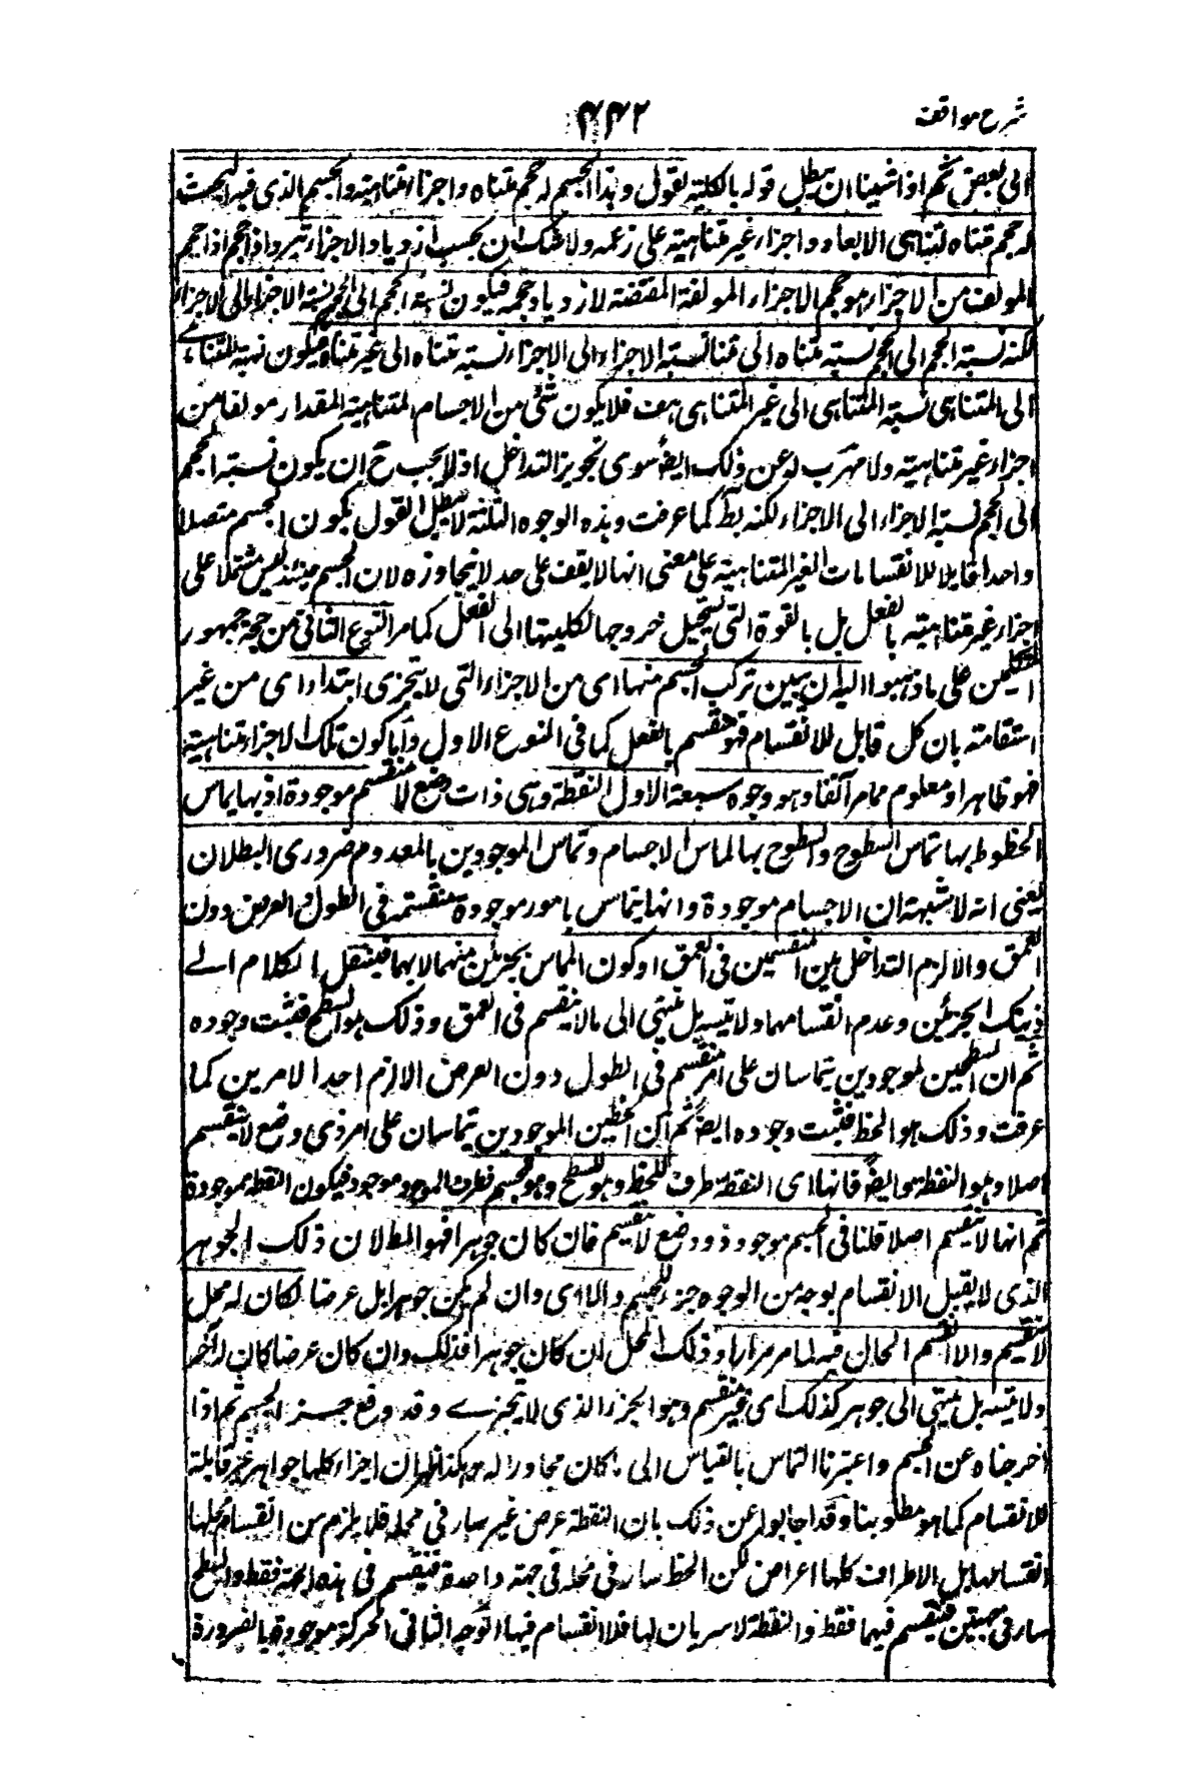 شرح مواقف
۴۴۲
الى بعض ثم اذا شئنا ان نبطل قوله بالكلية نقول وهذا الجسم له حجم متناه واجزاء متناهية والجسم الذى فيه البحث
له حجم متناه لتناهى الابعاد واجزاء غير متناهية على زعمه ولا شك ان بحسب ازدياد الاجزاء يزداد الحجم اذا حجم
المولف من الاجزاء هو حجم الاجزاء المولفة المقتضية لازدياد حجمه فيكون نسبة الحجم الى الحجم نسبة الاجزاء الى الاجزاء
لكنه نسبة الحجم الى الحجم نسبة متناه الى متناه نسبة الاجزاء الى الاجزاء نسبة متناه الى غير متناه فيكون نسبة المتناهى
الى المتناهى نسبة المتناهى الى غير المتناهى هف فلا يكون شئ من الاجسام المتناهية المقدار مولفا من
اجزاء غير متناهية ولا مهرب له عن ذلك ايضا سوى تجويز التداخل اذ لا يجب ح ان يكون نسبة الحجم
الى الحجم نسبة الاجزاء الى الاجزاء لكنه بط كما عرفت وهذه الوجوه الثلثة لا تبطل القول بكون الجسم متصلا
واحدا قابلا للانقسامات الغير المتناهية على معنى انها لا يقف على حد لا يتجاوزه لان الجسم حينئذ ليس مشتملا على
اجزاء غير متناهية بالفعل بل بالقوة التى يستحيل خروجها لكليتها الى الفعل كما مر النوع الثانى من حجة جمهور
المتكلمين على ما ذهبوا اليه ان يبين تركب الجسم منها اى من الاجزاء التى لا يتجزى ابتداء اى من غير
استقامة بان كل قابل للانقسام فهو منقسم بالفعل كما فى النوع الاول واما كون تلك الاجزاء متناهية
فهو ظاهر او معلوم مما مر آنفا وهو وجوه سبعة الاول النقطة وهى ذات وضع لا ينقسم موجودة اذ بها يماس
الخطوط بها تماس السطوح والسطوح بها تماس الاجسام وتماس الموجودين بالمعدوم ضرورى البطلان
يعنى انه لا شبهة ان الاجسام موجودة وانها يتماس بامور موجودة منقسمة فى الطول والعرض دون
العمق والا لزم التداخل بين المنقسمين فى العمق او كون التماس بجزئين منهما لا بهما فينقل الكلام الى
ذينك الجزئين وعدم انقسامهما ولا يتسلسل بل ينتهى الى ما لا ينقسم فى العمق وذلك هو السطح فثبت وجوده
ثم ان السطحين الموجودين يتماسان على امر منقسم فى الطول دون العرض والا لزم احد الامرين كما
عرفت وذلك هو الخط فثبت وجوده ايضا ثم ان الخطين الموجودين يتماسان على امر ذى وضع لا ينقسم
اصلا وهو النقطة وايضا فانها اى النقطة طرف للخط وهو للسطح وهو للجسم فطرف الموجود موجود فيكون النقطة موجودة
ثم انها لا ينقسم اصلا قلنا فى الجسم موجود ذو وضع لا ينقسم فان كان جوهرا فهو المط لان ذلك الجوهر
الذى لا يقبل الانقسام بوجه من الوجوه جزء للجسم والا اى وان لم يكن جوهرا بل عرضا لكان له محل
لا ينقسم والا انقسم الحال فيه لما مر مرارا وذلك المحل ان كان جوهرا فذلك وان كان عرضا كان له آخر
ولا يتسلسل بل ينتهى الى جوهر كذلك اى غير منقسم وهو الجزء الذى لا يتجزى وقد وقع جزء الجسم ثم اذا
اخرجناه عن الجسم واعتبرنا التماس بالقياس الى ما كان مجاورا له وهكذا ظهر ان اجزاءه كلها جواهر غير قابلة
للانقسام كما هو مطلوبنا وقد اجابوا عن ذلك بان النقطة عرض غير سار فى محله فلا يلزم من انقسام محلها
انقسامها بل الاطراف كلها اعراض لكن الخط سار فى محله فى جهة واحدة فينقسم فى هذه الجهة فقط والسطح
سار فى جهتين فينقسم فيهما فقط والنقطة لا سريان لها فلا انقسام فيها الوجه الثانى الحركة موجودة بالضرورة